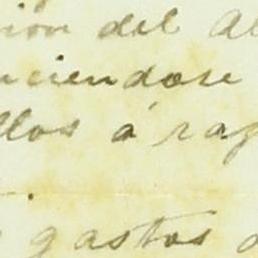 ión del Al
nciendose
llos á raz
gastos d